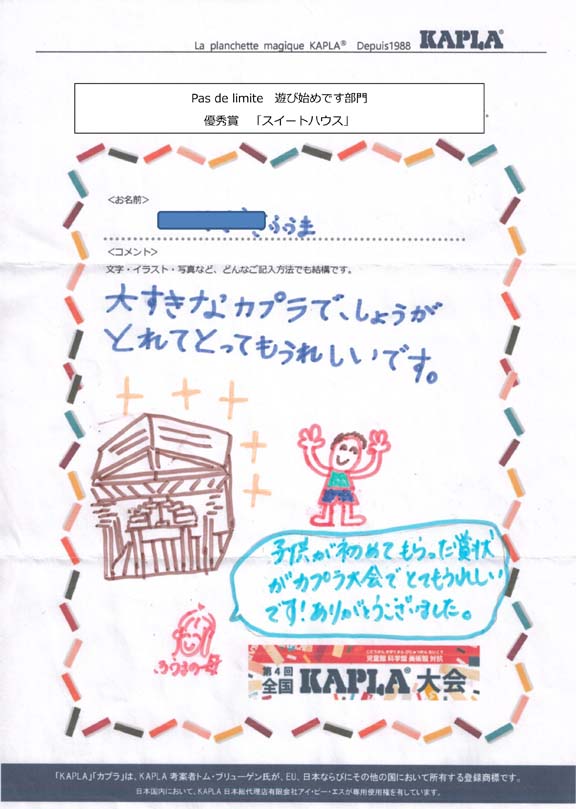 La planchette magique KAPLA® Depuis1988 KAPLA®
Pas de limite　遊び始めです部門
優秀賞　「スイートハウス」
<お名前>
ふうま
<コメント>
文字・イラスト・写真など、どんなご記入方法でも結構です。
大すきなカプラで、しょうが
とれてとってもうれしいです。
子供が初めてもらった賞状
がカプラ大会でとてもうれしい
です！ありがとうございました。
ふうまの母
児童館 科学館 美術館 対抗
第4回
全国 KAPLA® 大会
「KAPLA」「カプラ」は、KAPLA 考案者トム・ブリューゲン氏が、EU、日本ならびにその他の国において所有する登録商標です。
日本国内において、KAPLA 日本総代理店有限会社アイ・ピー・エスが専用使用権を有しています。